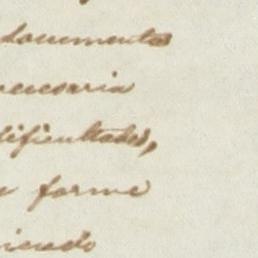 documentos
necesaria
dificultades,
forme